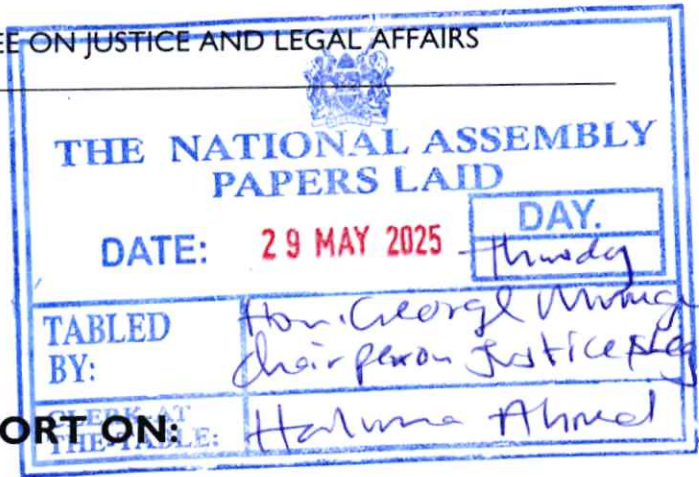 EE ON JUSTICE AND LEGAL AFFAIRS
THE NATIONAL ASSEMBLY
PAPERS LAID
DATE: 29 MAY 2025
DAY.
Thursday
TABLED
BY:
Hon. George
Chairperson Justice
ORT ON:
CLERK AT
THE-TABLE:
Halima Ahmed